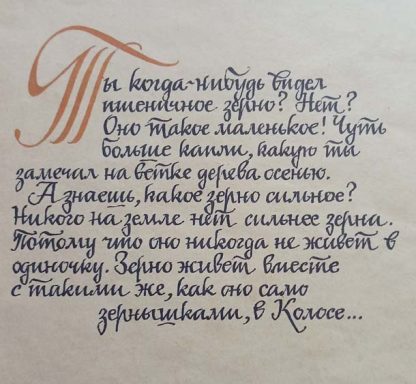 Ты когда-нибудь видел
пшеничное зерно? Нет?
Оно такое маленькое! Чуть
больше капли, какую ты
замечал на ветке дерева осенью.
А знаешь, какое зерно сильное?
Никого на земле нет сильнее зерна.
Потому что оно никогда не живет в
одиночку. Зерно живет вместе
с такими же, как оно само
зернышками, в Колосе...